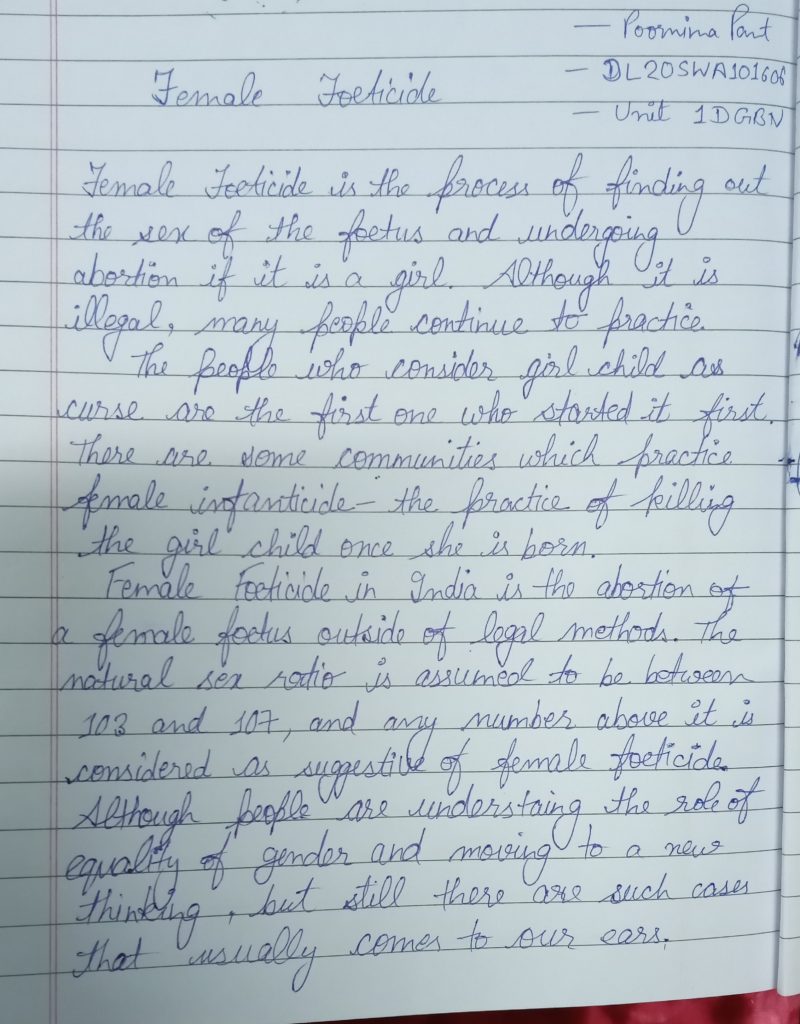 — Poornima Pant
— DL20SWA101606
— Unit 1DGBN
Female Foeticide
Female Foeticide is the process of finding out
the sex of the foetus and undergoing
abortion if it is a girl. Although it is
illegal, many people continue to practice.
The people who consider girl child as
curse are the first one who started it first.
There are some communities which practice
female infanticide - the practice of killing
the girl child once she is born.
Female Foeticide in India is the abortion of
a female foetus outside of legal methods. The
natural sex ratio is assumed to be between
103 and 107, and any number above it is
considered as suggestive of female foeticide.
Although people are understaing the role of
equality of gender and moving to a new
thinking, but still there are such cases
that usually comes to our ears.